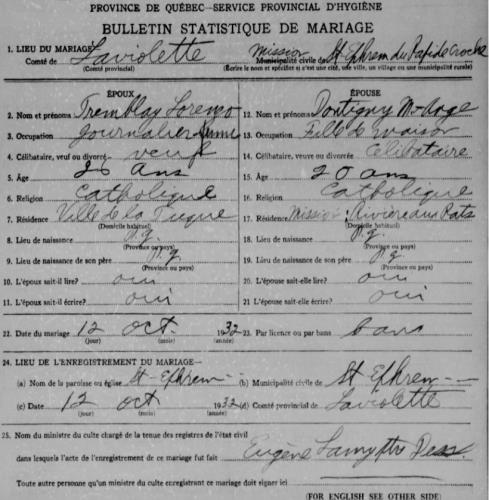 PROVINCE DE QUÉBEC—SERVICE PROVINCIAL D'HYGIÈNE
BULLETIN STATISTIQUE DE MARIAGE
1. LIEU DU MARIAGE Mission
Comté de Laviolette Municipalité civile de St Ephrem du Rapide Croche
(Comté provincial) (Écrire le nom et spécifier si c'est une cité, une ville, un village ou une municipalité rurale)
ÉPOUX ÉPOUSE
2. Nom et prénoms Tremblay Lorenzo 12. Nom et prénoms Dontigny M
3. Occupation Journalier 13. Occupation Fille de maison
4. Célibataire, veuf ou divorcé veuf 14. Célibataire, veuve ou divorcée Célibataire
5. Âge ans 15. Âge 20 ans
6. Religion Catholique 16. Religion Catholique
7. Résidence Ville de la Tuque 17. Résidence Mission: Rivière aux Rats
(Domicile habituel) (Domicile habituel)
8. Lieu de naissance p.q. 18. Lieu de naissance p.q.
(Province ou pays) (Province ou pays)
9. Lieu de naissance de son père p.q. 19. Lieu de naissance de son père p.q.
(Province ou pays) (Province ou pays)
10. L'époux sait-il lire? oui 20. L'épouse sait-elle lire? oui
11. L'époux sait-il écrire? oui 21 L'épouse sait-elle écrire? oui
22. Date du mariage 12 oct. 1932 23. Par licence ou par bans bans
(jour) (mois) (année)
24. LIEU DE L'ENREGISTREMENT DU MARIAGE—
(a) Nom de la paroisse ou église St-Ephrem (b) Municipalité civile de St Ephrem
(c) Date 12 oct 1932 (d) Comté provincial de Laviolette
(jour) (mois) (année)
25. Nom du ministre du culte chargé de la tenue des registres de l'état civil
dans lesquels l'acte de l'enregistrement de ce mariage fut fait Eugène Lamy ptre Dess.
Toute autre personne qu'un ministre du culte enregistrant ce mariage doit signer ici
(FOR ENGLISH SEE OTHER SIDE)